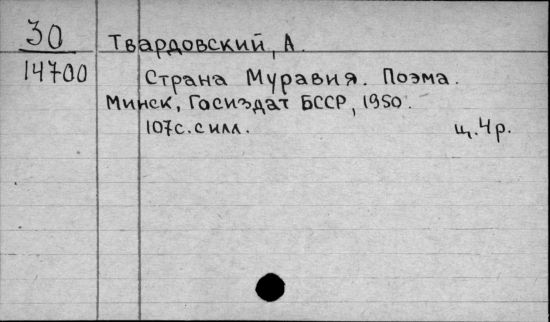 30
14700
Твардовский, А.
Страна Муравия. Поэма.
Минск, Госиздат БССР, 1950.
107с. с илл. ц. 4р.